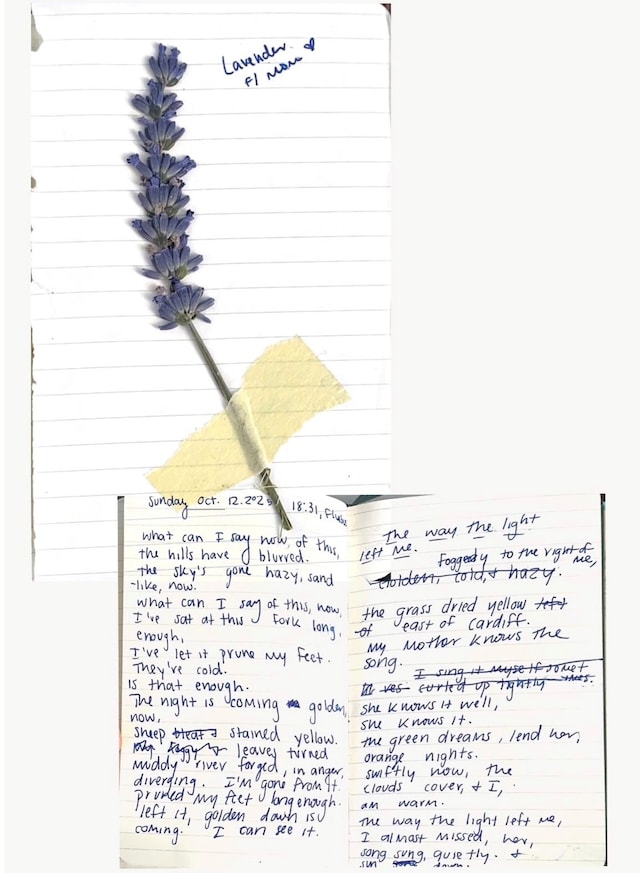 Lavender
f/ mom
Sunday Oct. 12. 2025 18:31,
what can I say now, of this,
the hills have blurred.
The sky's gone hazy, sand
-like, now.
what can I say of this, now,
I've sat at this fork long,
enough,
I've let it prune my feet.
They're cold.
Is that enough.
The night is coming golden,
now,
sheep bleat stained yellow.
foggy leaves turned
muddy river forged, in anger,
diverging. I'm gone from it.
pruned my feet long enough.
left it, golden dawn is
coming. I can see it.
The way the light
left me.
foggedy to the right of me,
Golden, cold, & hazy.
the grass dried yellow left
of east of Cardiff.
My Mother knows the
song.
I sing it myself
curled up tightly
she knows it well,
she knows it.
the green dreams, lend her,
orange nights.
swiftly now, the
clouds cover, & I,
am warm.
The way the light left me,
I almost missed, her,
song sung, quietly. &
sun down.